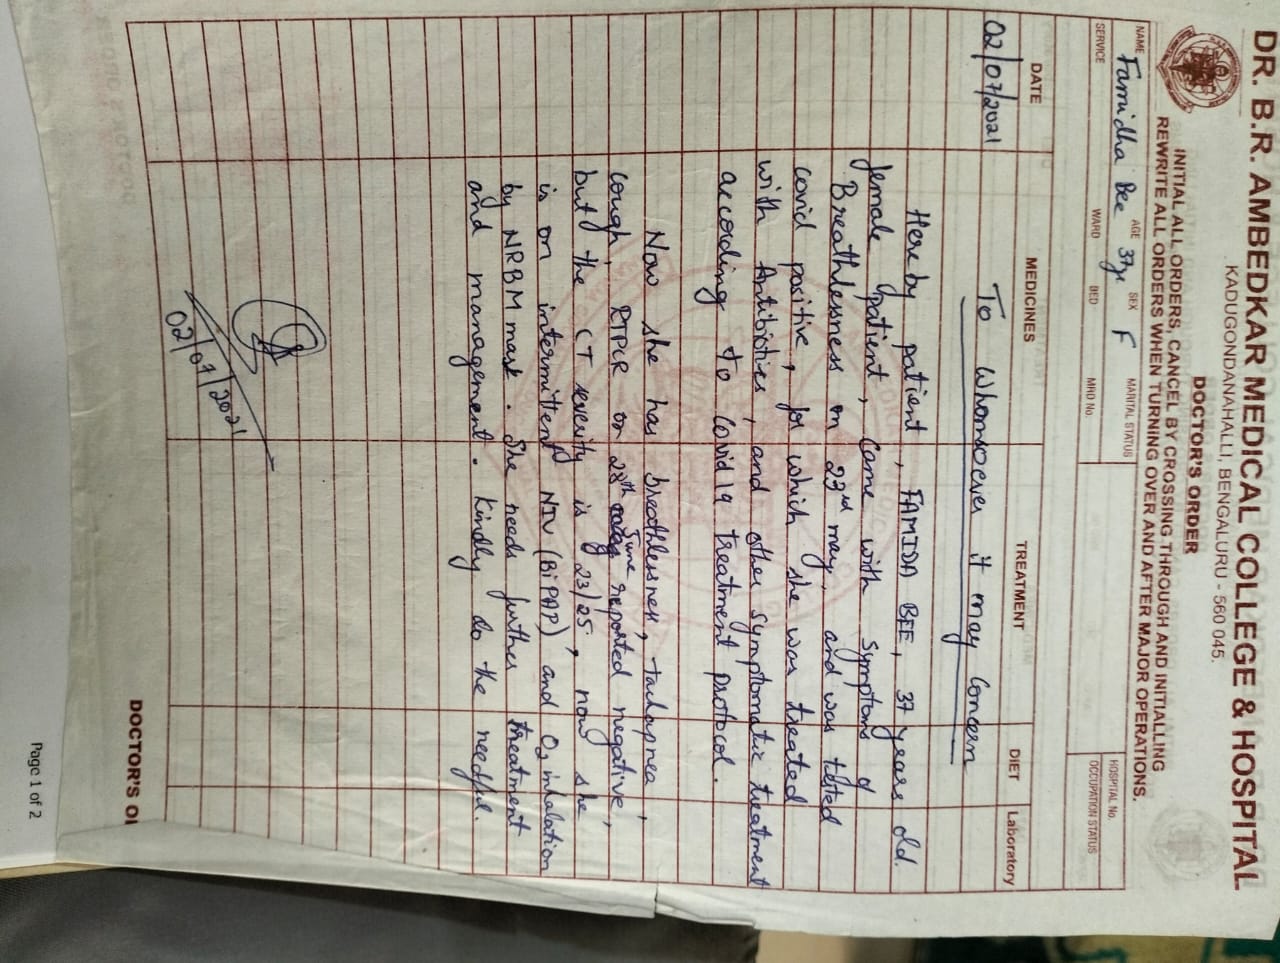 DR. B.R. AMBEDKAR MEDICAL COLLEGE & HOSPITAL
KADUGONDANAHALLI, BENGALURU - 560 045.
DOCTOR'S ORDER
INITIAL ALL ORDERS, CANCEL BY CROSSING THROUGH AND INITIALLING
REWRITE ALL ORDERS WHEN TURNING OVER AND AFTER MAJOR OPERATIONS.
NAME Famidha Bee AGE 37yr SEX F MARITAL STATUS HOSPITAL No.
SERVICE WARD BED MRD No. OCCUPATION STATUS
DATE MEDICINES TREATMENT DIET Laboratory
02/07/2021 To Whomsoever it may Concern
Here by patient, FAMIDA BEE, 37 years old.
female patient, Came with Symptoms of
Breathlessness on 23rd may, and was tested
covid positive, for which she was treated
with Antibiotics, and other symptomatic treatment
according to Covid 19 treatment protocol.
Now she has breathlessness, tachapnea,
cough, RTPCR on 28th June reported negative,
but the CT severity is 23/25, now she
is on intermittent NIV (BiPAP) and O2 inhalation
by NRBM mask. She needs further treatment
and management. Kindly do the needful.
02/07/2021
DOCTOR'S O
Page 1 of 2